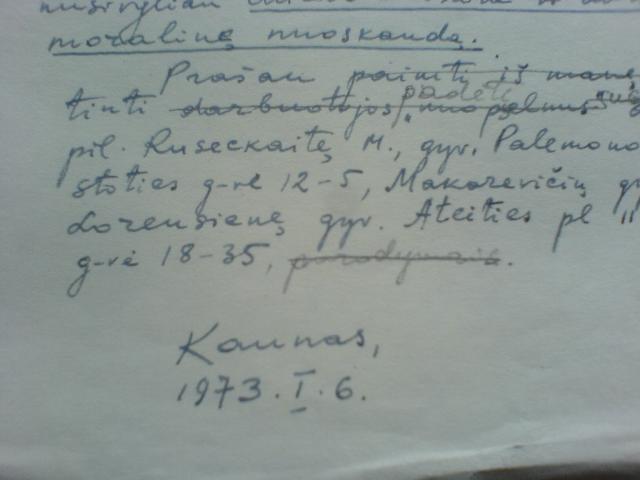 moralinę nuoskaudą.
Prašau paimti iš manę
tinti darbuotojos padėti "nuopelnus"
pil. Ruseckaitę M., gyv. Palemono
stoties g-vė 12-5, Makarevičių gy
Lorensienę gyv. Ateities pl "
g-vė 18-35, parodymais.
Kaunas,
1973.I.6.